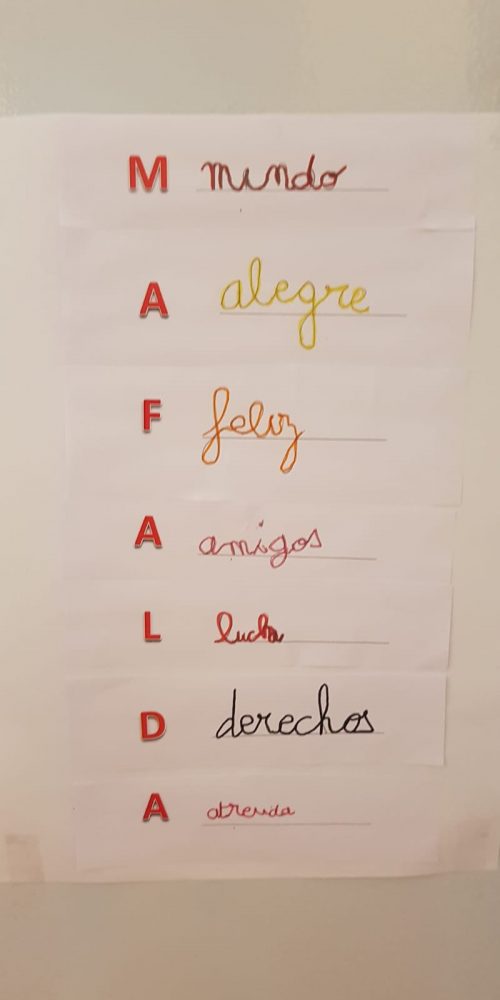 M mundo
A alegre
F feliz
A amigos
L lucha
D derechos
A atrevida